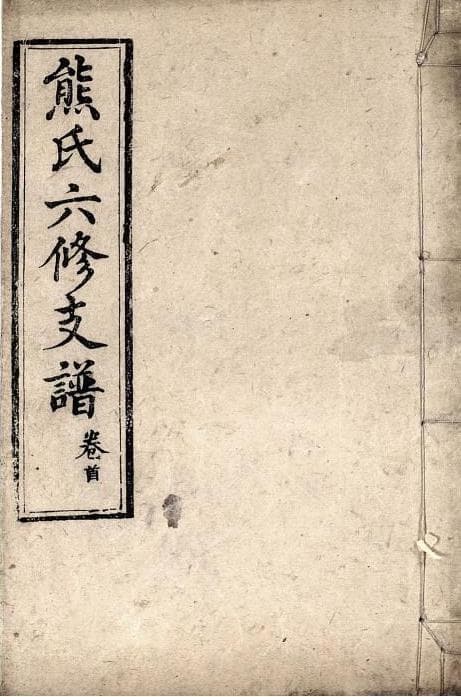 熊氏六修支譜
卷首